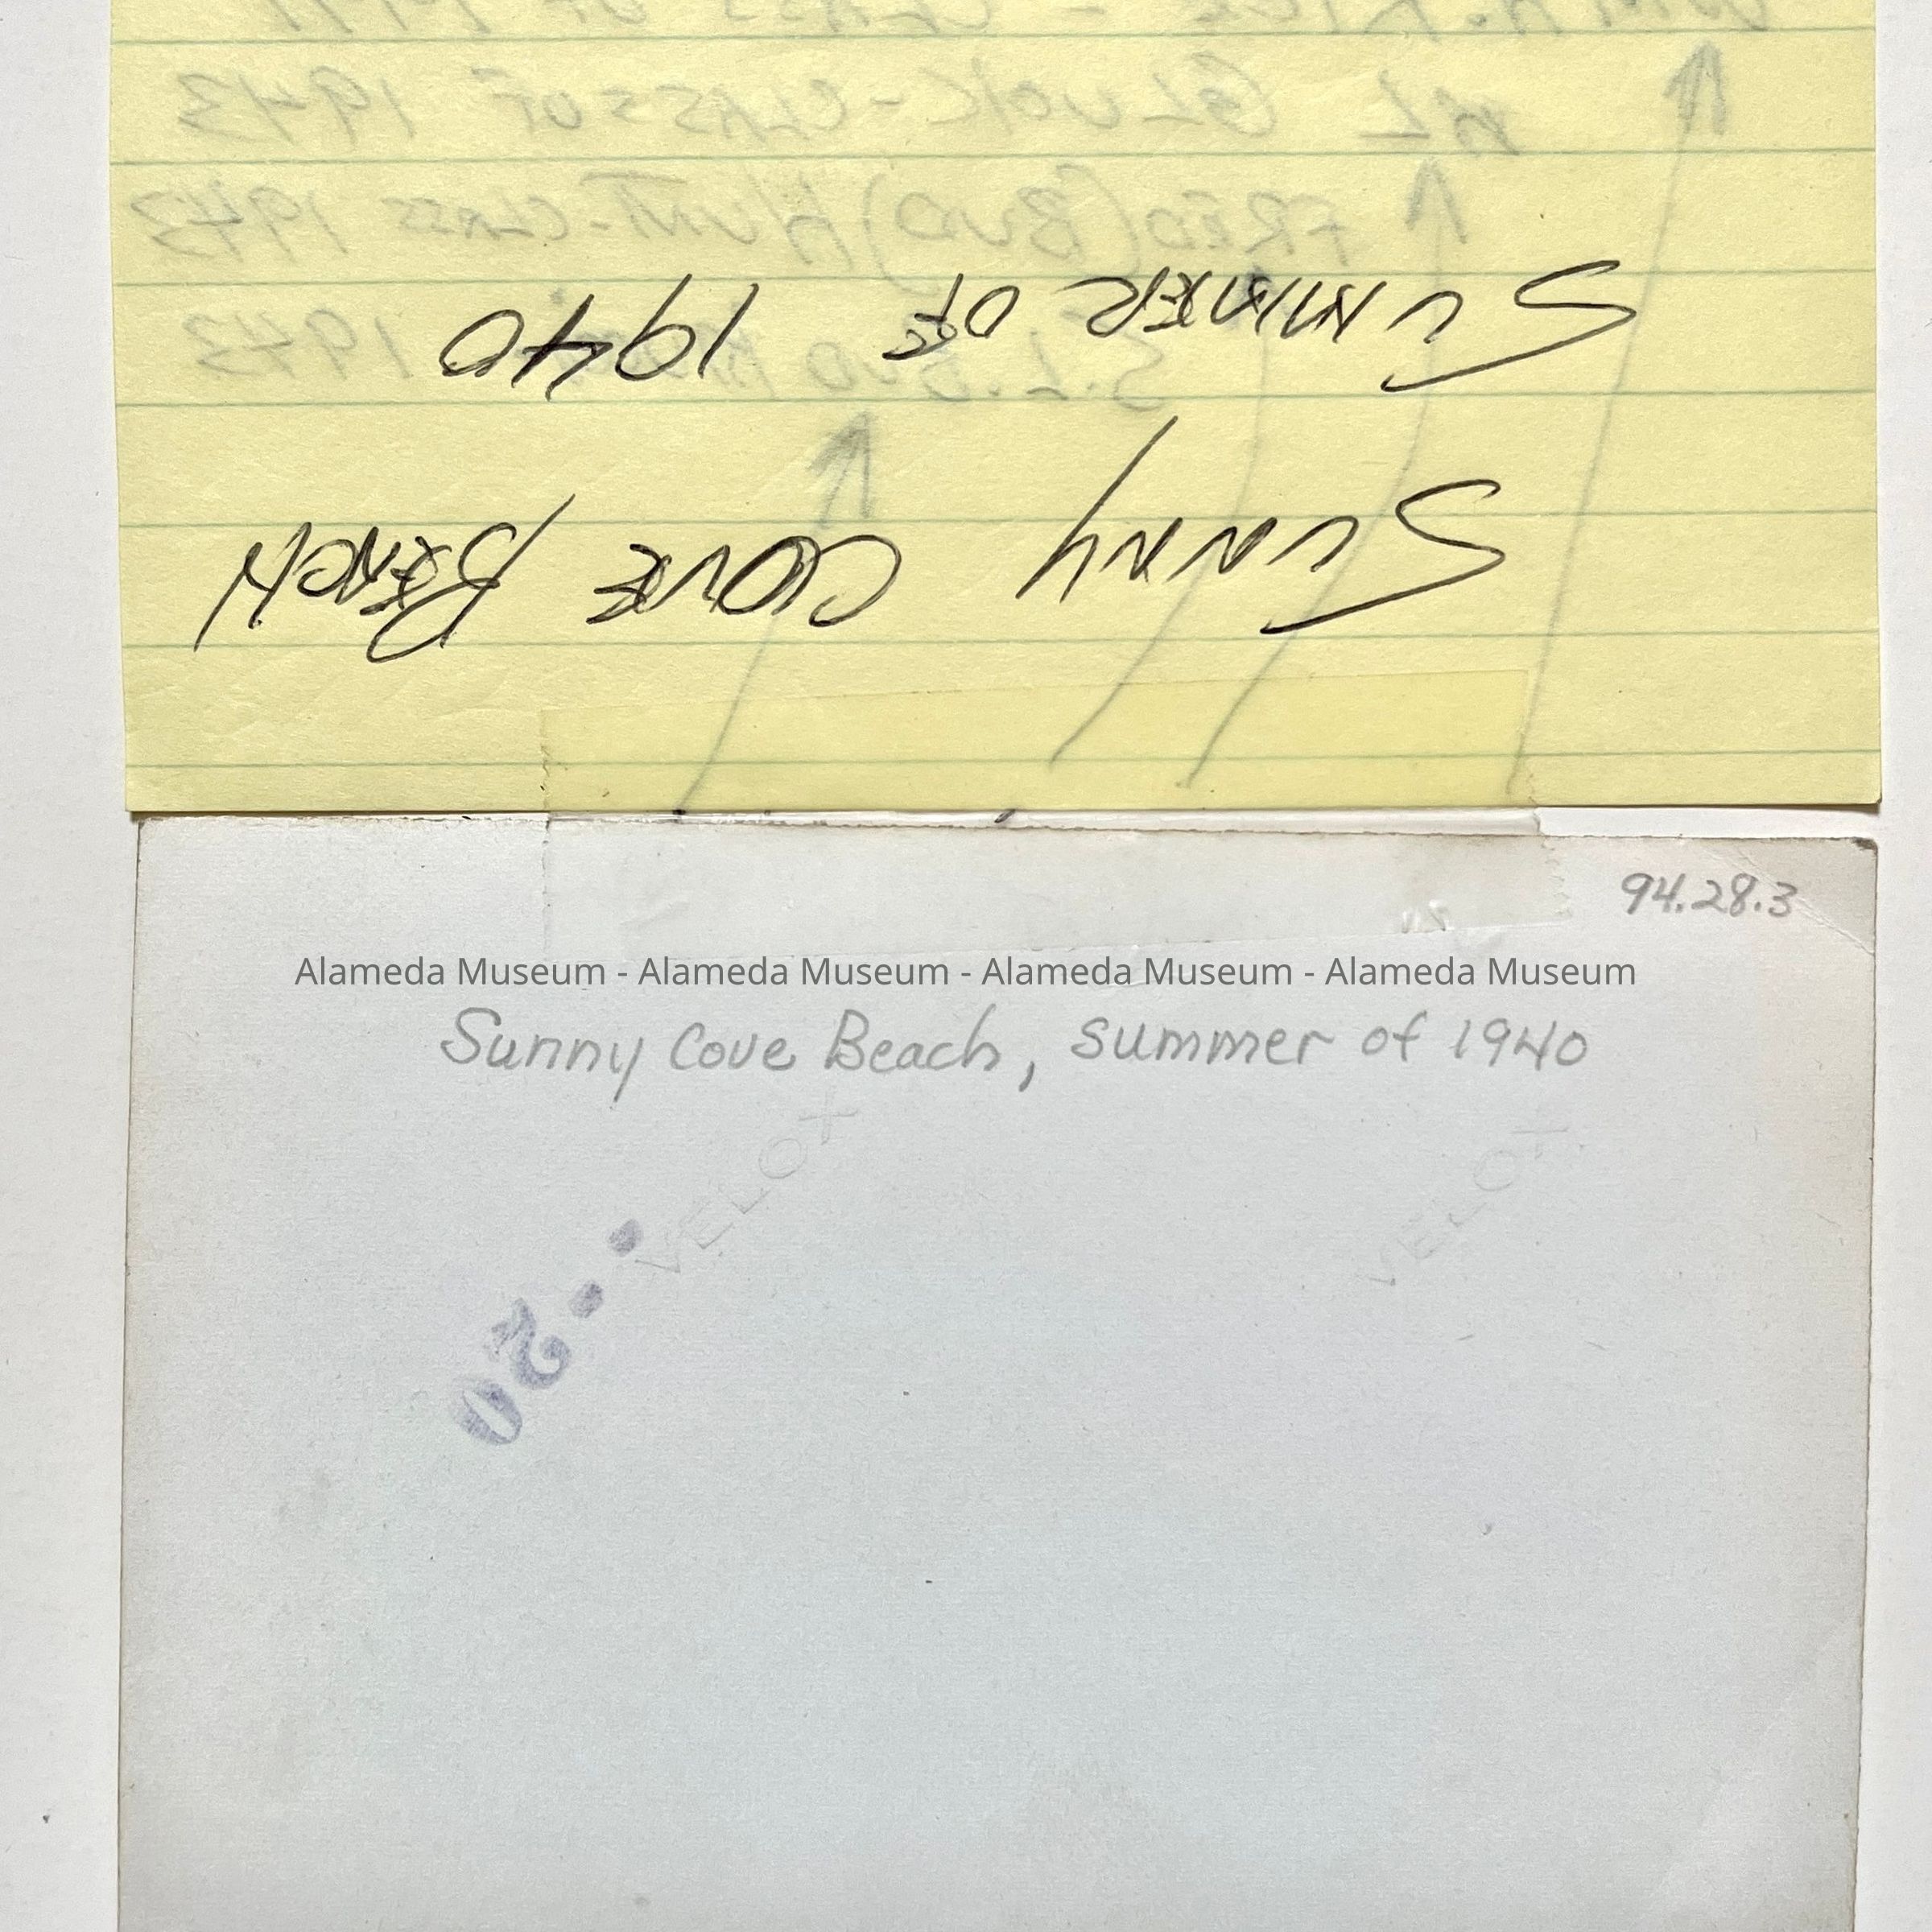 AL GLUCK - CLASS OF 1943
FRED (BUD) HUNT - CLASS 1943
1943
SUNNY COVE BEACH
SUMMER OF 1940
94.28.3
Alameda Museum - Alameda Museum - Alameda Museum - Alameda Museum
Sunny Cove Beach, summer of 1940
VELOX VELOX